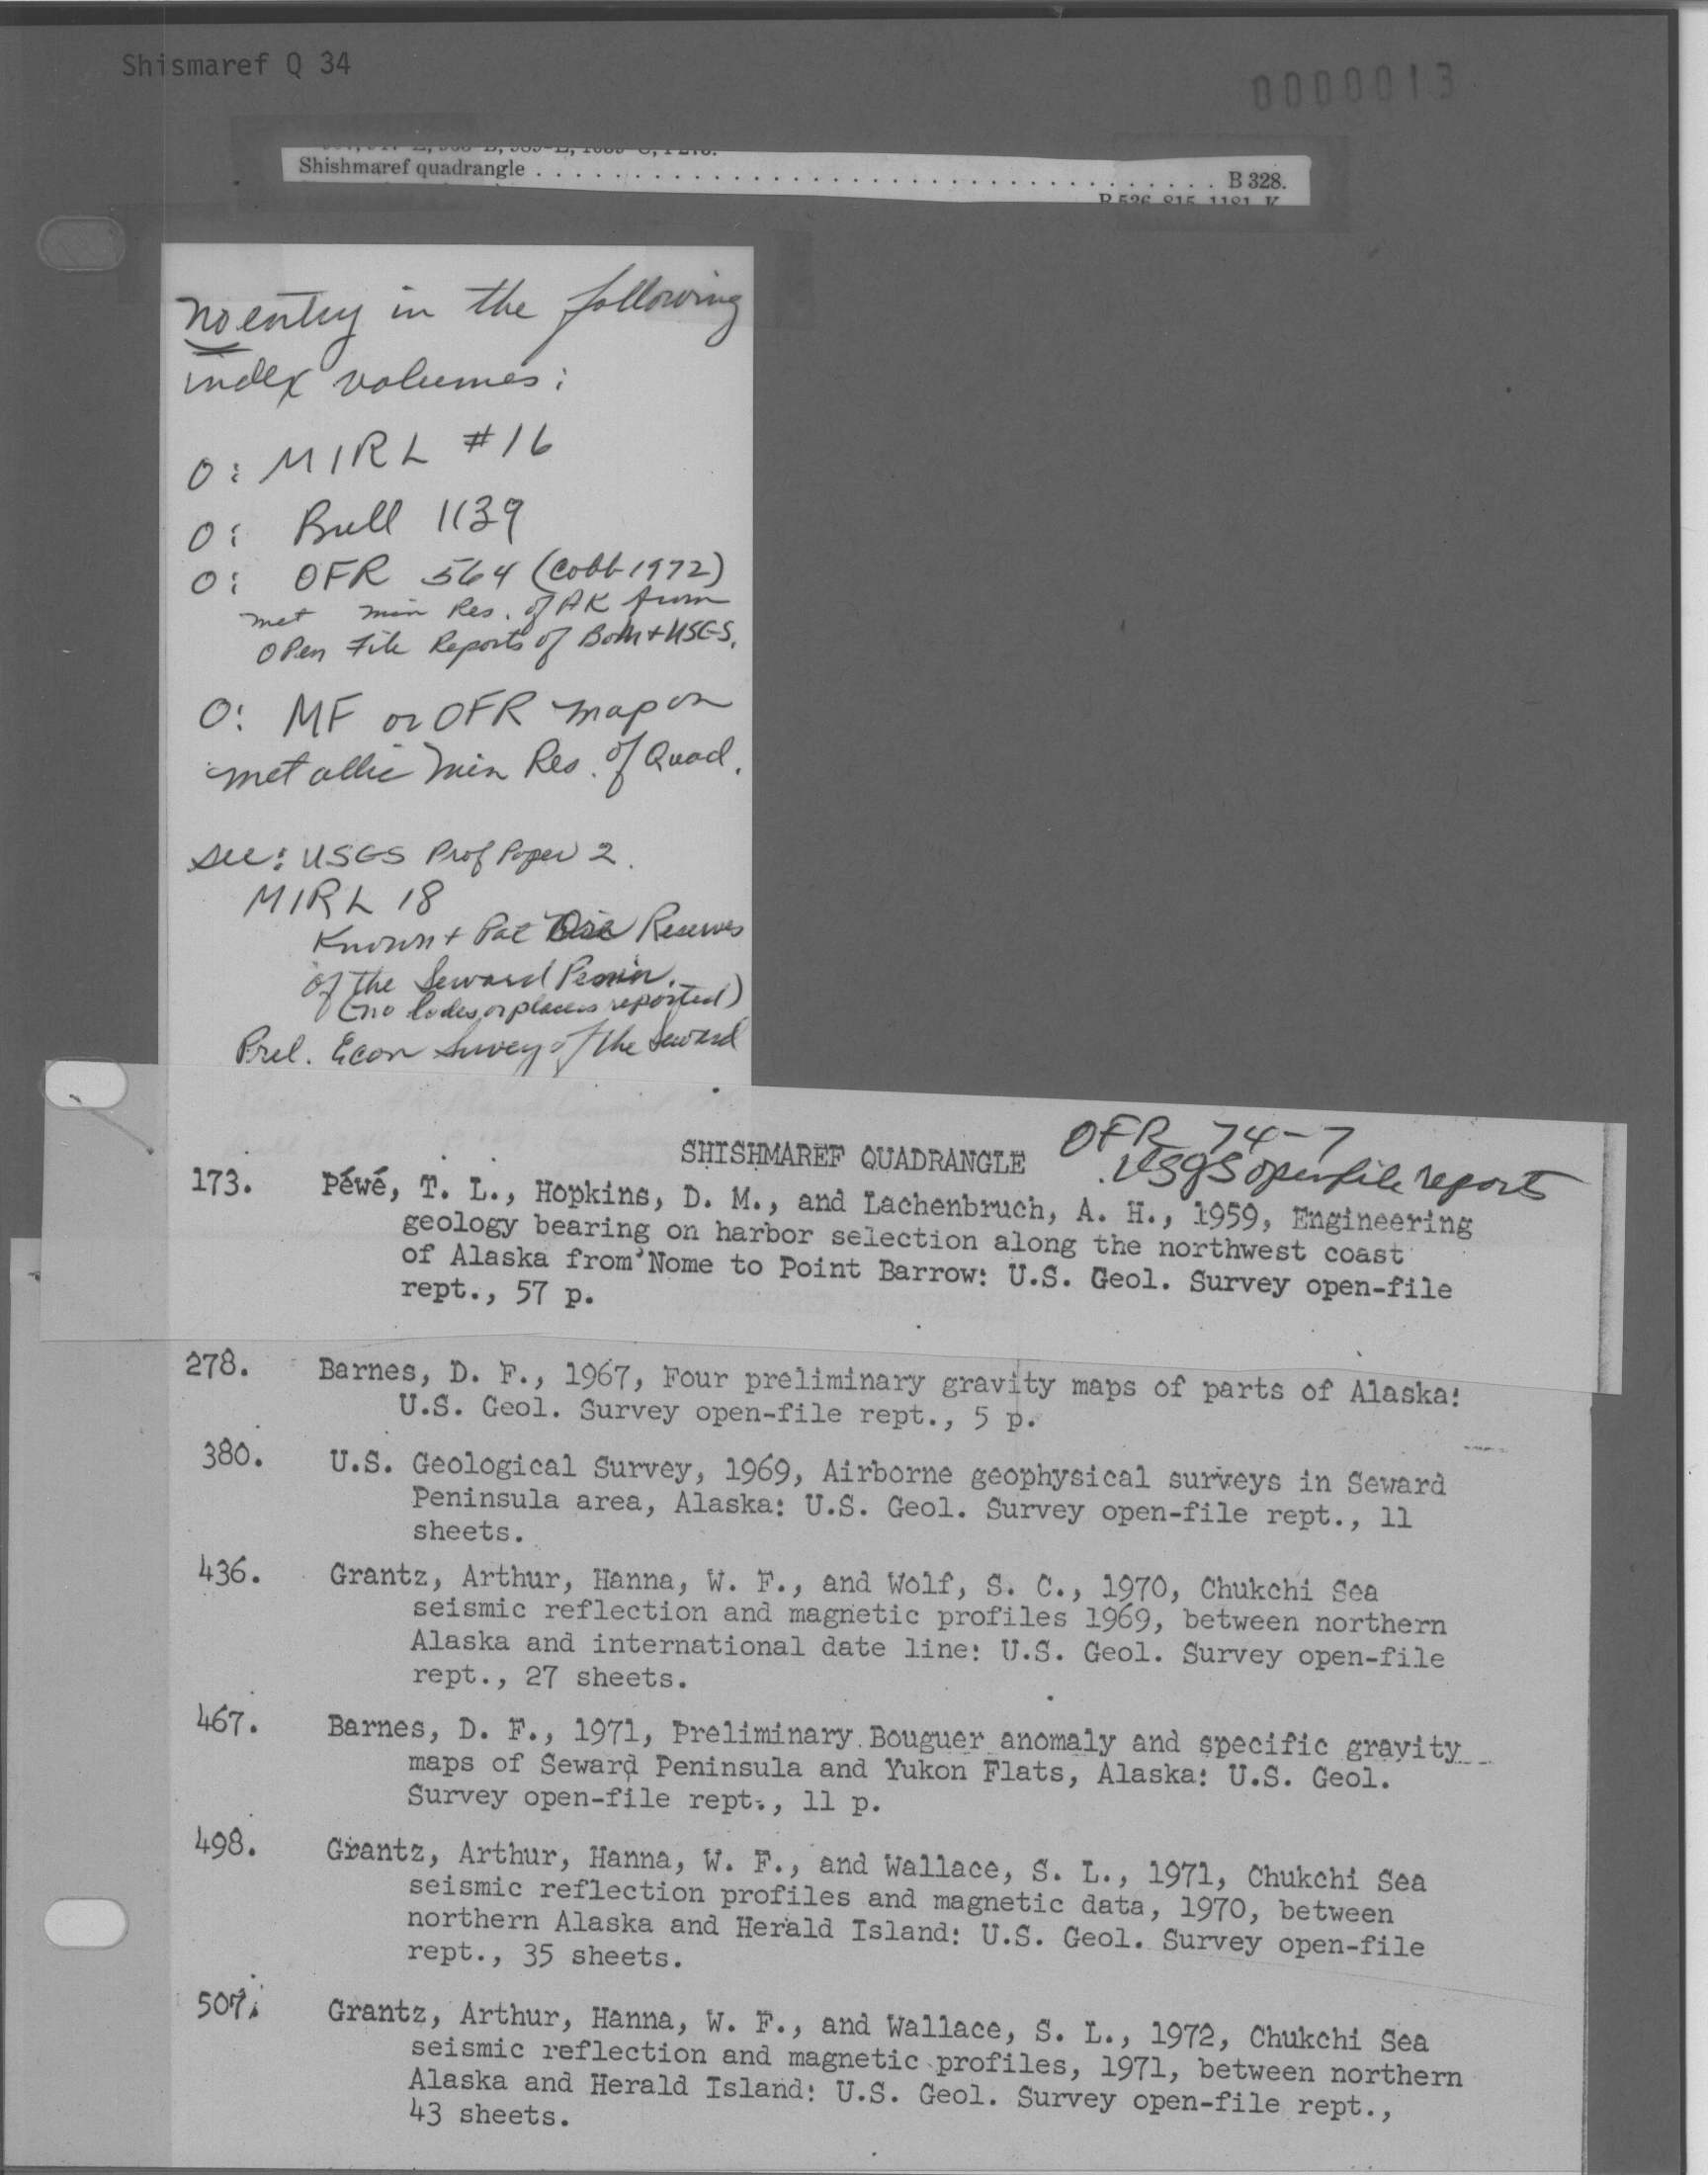 Shismaref Q 34
0000013
Shishmaref quadrangle . . . . . . . . . . . . . . . . . . . . . . . . . . . . . . . . . . . B 328.
No entry in the following
index volumes:
O: MIRL #16
O: Bull 1139
O: OFR 564 (Cobb 1972)
met min Res. of AK from
Open File Reports of BoM + USGS.
O: MF or OFR map on
metallic min Res. of Quad.
see: USGS Prof Paper 2.
MIRL 18
Known + Pot Reserves
of the Seward Penin.
(no lodes or placers reported)
Prel. Econ Survey of the Seward
SHISHMAREF QUADRANGLE
OFR 74-7
USGS open file reports
173. Péwé, T. L., Hopkins, D. M., and Lachenbruch, A. H., 1959, Engineering
geology bearing on harbor selection along the northwest coast
of Alaska from Nome to Point Barrow: U.S. Geol. Survey open-file
rept., 57 p.
278. Barnes, D. F., 1967, Four preliminary gravity maps of parts of Alaska:
U.S. Geol. Survey open-file rept., 5 p.
380. U.S. Geological Survey, 1969, Airborne geophysical surveys in Seward
Peninsula area, Alaska: U.S. Geol. Survey open-file rept., 11
sheets.
436. Grantz, Arthur, Hanna, W. F., and Wolf, S. C., 1970, Chukchi Sea
seismic reflection and magnetic profiles 1969, between northern
Alaska and international date line: U.S. Geol. Survey open-file
rept., 27 sheets.
467. Barnes, D. F., 1971, Preliminary Bouguer anomaly and specific gravity
maps of Seward Peninsula and Yukon Flats, Alaska: U.S. Geol.
Survey open-file rept., 11 p.
498. Grantz, Arthur, Hanna, W. F., and Wallace, S. L., 1971, Chukchi Sea
seismic reflection profiles and magnetic data, 1970, between
northern Alaska and Herald Island: U.S. Geol. Survey open-file
rept., 35 sheets.
507. Grantz, Arthur, Hanna, W. F., and Wallace, S. L., 1972, Chukchi Sea
seismic reflection and magnetic profiles, 1971, between northern
Alaska and Herald Island: U.S. Geol. Survey open-file rept.,
43 sheets.